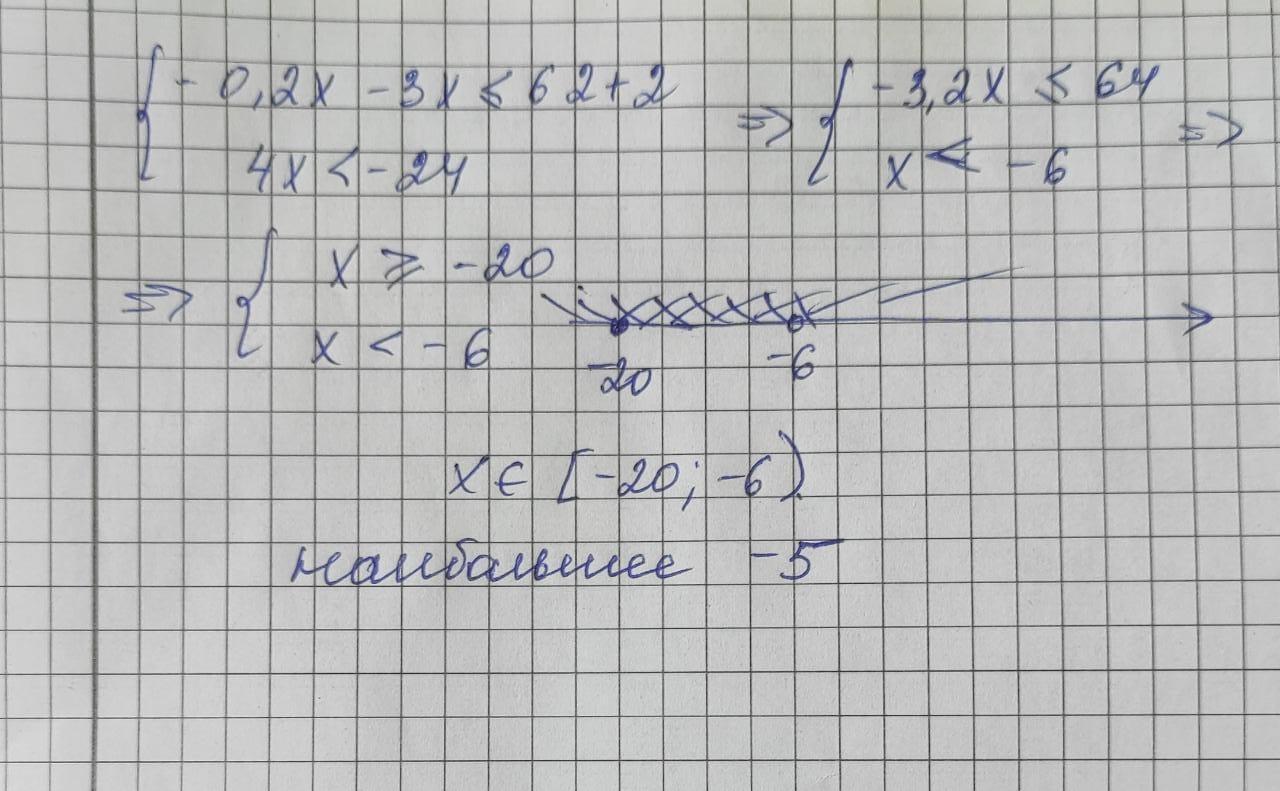 { - 0,2x - 3x ≤ 62+2 => { -3,2x ≤ 64 =>
4x < -24 x < -6
=> { x ≥ -20
x < -6
-20 -6
x ∈ [-20; -6)
наибольшее -5